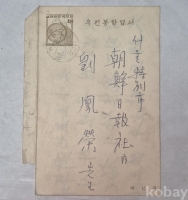 우편봉함엽서
서울特別市
朝鮮日報社內
劉鳳榮 先生
kobay